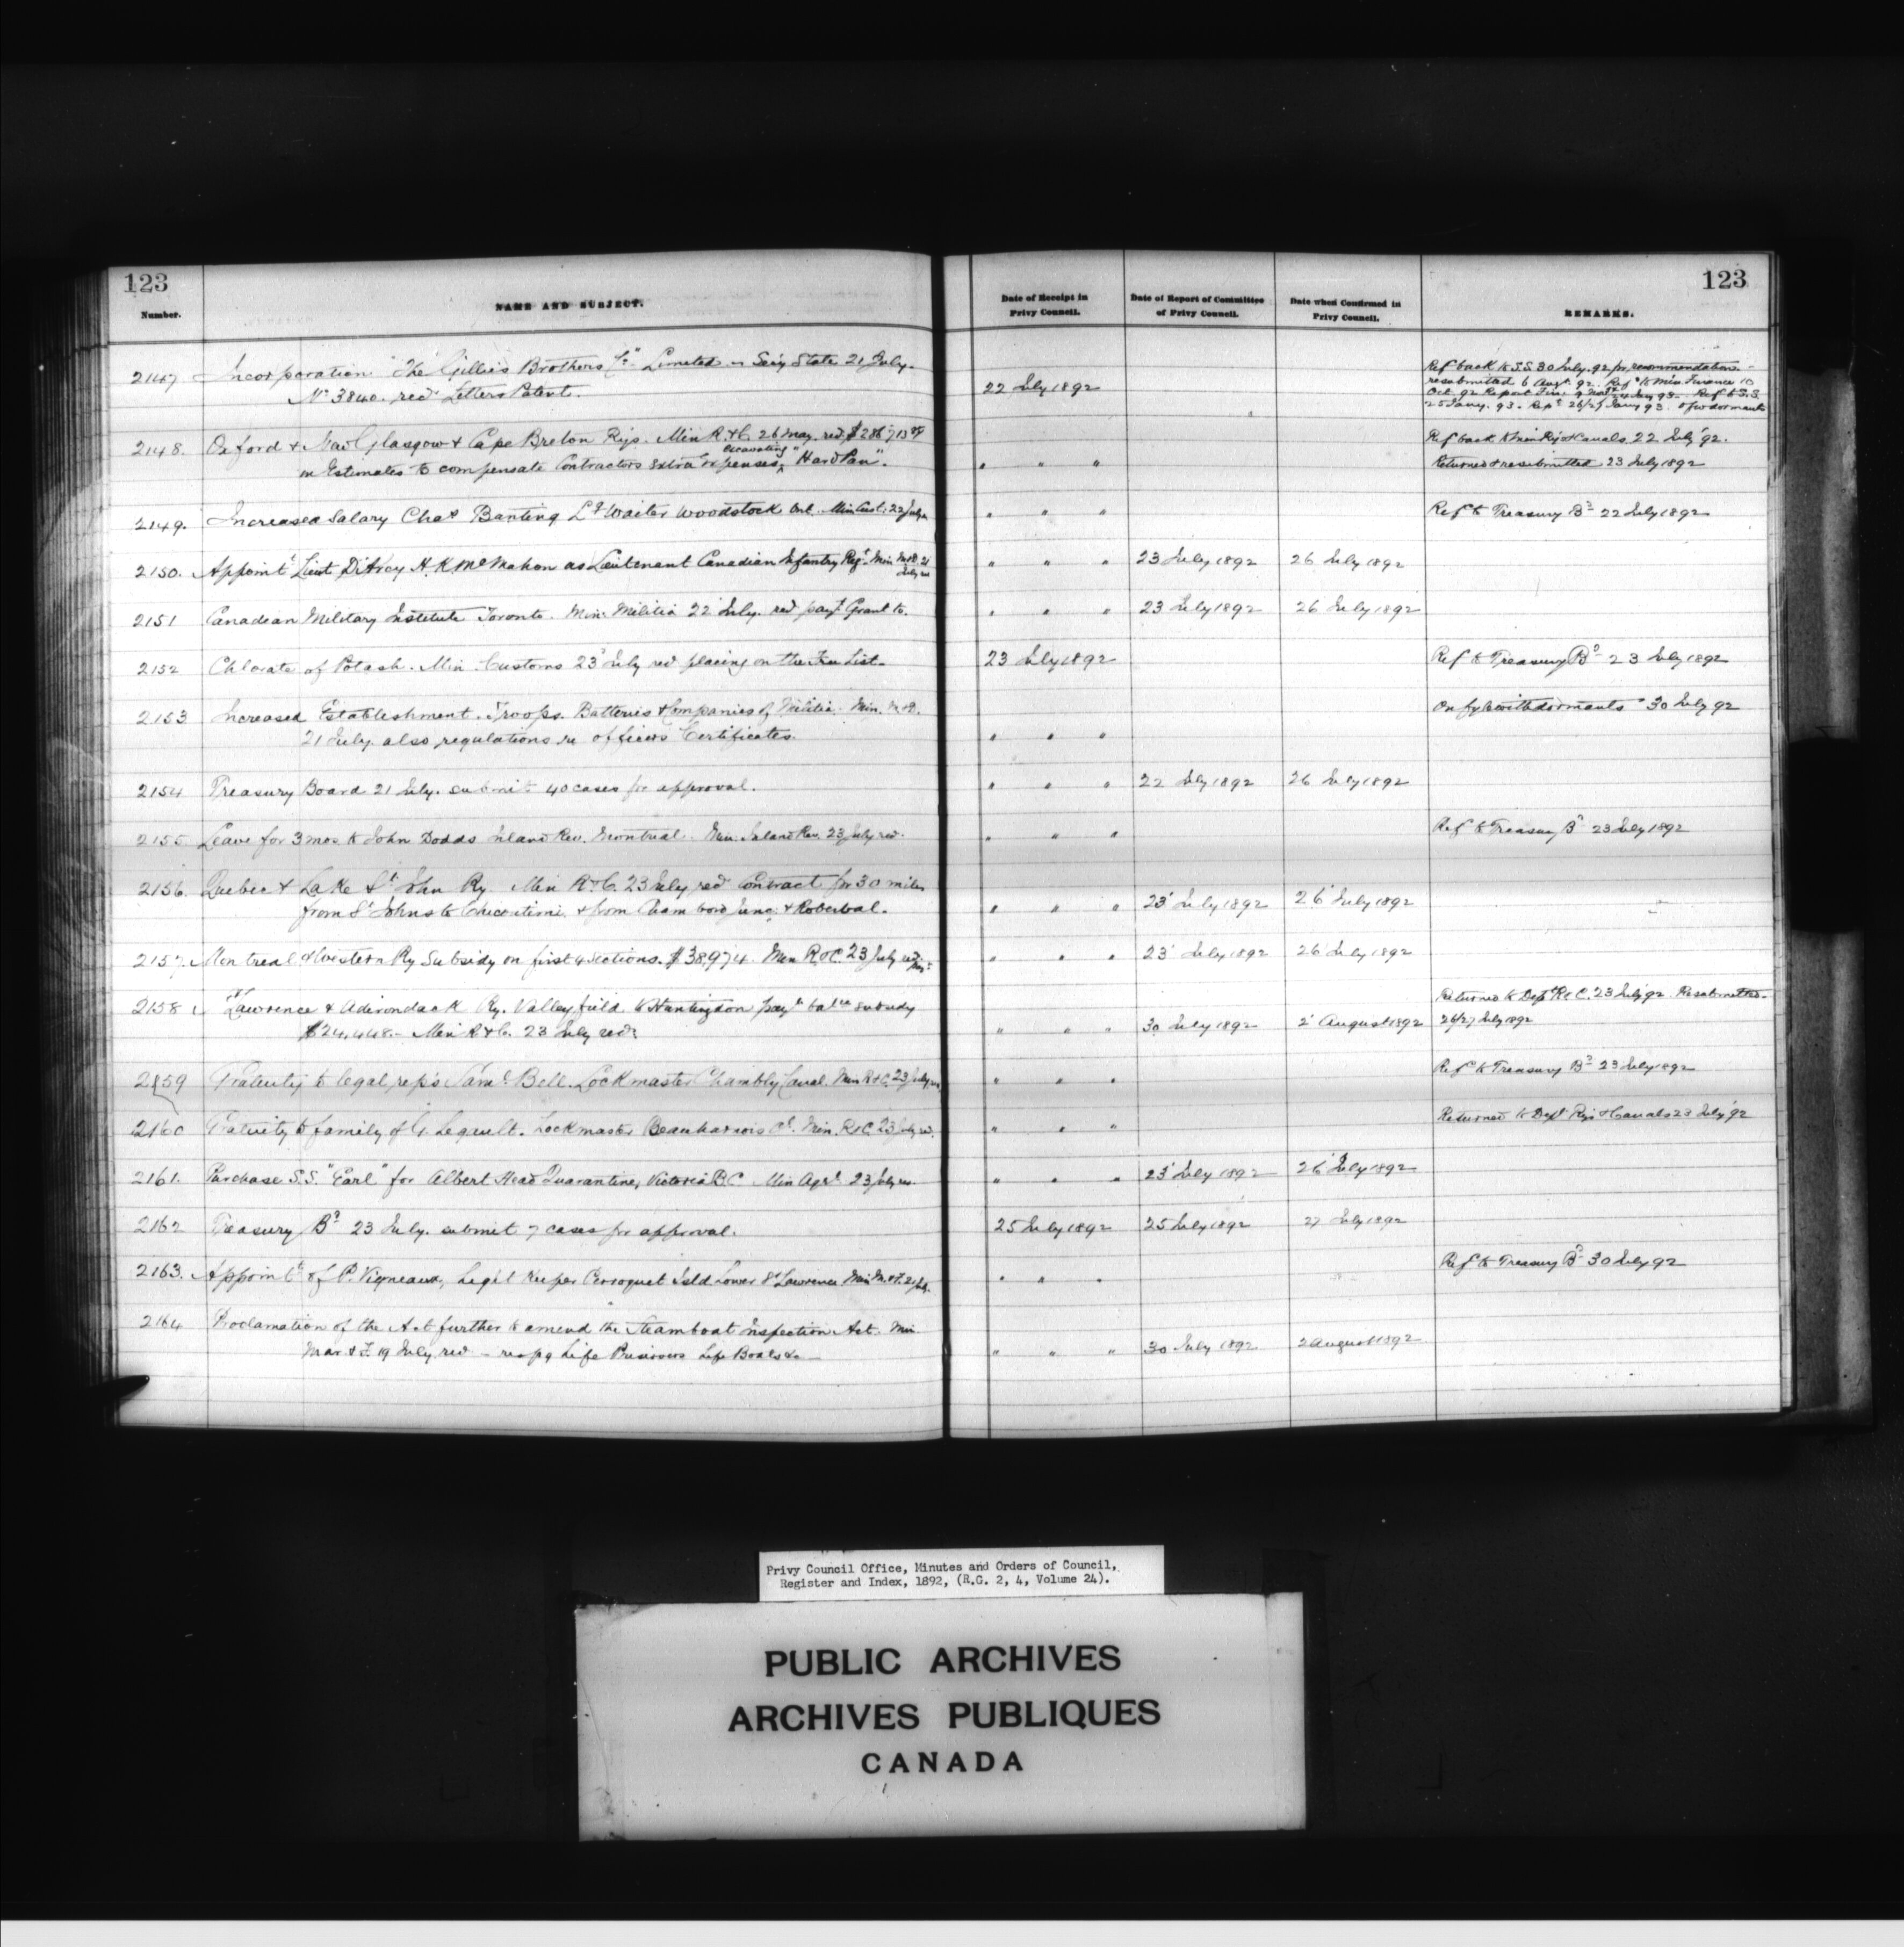 123
123
Number.
NAME AND SUBJECT.
Date of Receipt in Privy Council.
Date of Report of Committee of Privy Council.
Date when Confirmed in Privy Council.
REMARKS.
2147 Incorporation "The Gillies Brothers Co" Limited - Secy State 21 July.
No 3840. recd Letters Patent. 22 July 1892
Ref back to S.S. 30 July. 92 for recommendation -
resubmitted 6 Augt. 92. Refd to Min. Finance 10
Oct. 92 Report Fin. 9 Jany 93. Ref to S.S.
25 Jany. 93. Rept 26/27 Jany 93.
2148. Oxford & New Glasgow & Cape Breton Rys. Min R. & C. 26 May. red.
Ref back to Min Rys & Canals 22 July '92.
excavating
on Estimates to compensate Contractors extra expenses "Hard Pan". " " "
Returned & resubmitted 23 July 1892
2149. Increased Salary Chas Banting Ldg Waiter Woodstock Ont. Min Cust: 22 July " " " Refd to Treasury Bd 22 July 1892
2150. Appointt Lieut D'Arcy H. K. McMahon as Lieutenant Canadian Infantry Regt Min M&D. 21 July " " " 23 July 1892 26 July 1892
2151 Canadian Military Institute Toronto. Min. Militia 22 July. red payt Grant to. " " " 23 July 1892 26 July 1892
2152 Chlorate of Potash. Min. Customs 23 July red placing on the Free List. 23 July 1892 Refd to Treasury Bd 23 July 1892
2153 Increased Establishment. Troops. Batteries & Companies of Militia. Min. M&D. On fyle with dormants 30 July 92
21 July. also regulations re officers Certificates. " " "
2154 Treasury Board 21 July. submit 40 cases for approval. " " " 22 July 1892 26 July 1892
2155 Leave for 3 mos to John Dodds Inland Rev. Montreal. Min. Inland Rev. 23 July red. " " " Refd to Treasury Bd 23 July 1892
2156. Quebec & Lake St John Ry. Min R. & C. 23 July red Contract for 30 miles
from St Johns to Chicoutimi & from Chambord Junc: & Roberval. " " " 23 July 1892 26 July 1892
2157. Montreal & Western Ry Subsidy on first 4 sections. $38,974. Min R & C. 23 July red. " " " 23 July 1892 26 July 1892
2158 St Lawrence & Adirondack Ry. Valleyfield to Huntingdon payt balce subsidy
Returned to Dept R & C. 23 July '92. Resubmitted.
$24,448. - Min R & C. 23 July red. " " " 30 July 1892 2 August 1892 26/27 July 1892
2159 Gratuity to legal reps Saml Bell. Lockmaster Chambly Canal. Min R & C. 23 July " " " Refd to Treasury Bd 23 July 1892
2160 Gratuity to family of G. Legault. Lockmaster Beauharnois Cl. Min. R & C 23 July red. " " " Returned to Dept Rys & Canals 23 July '92
2161. Purchase S.S. "Earl" for Albert Head Quarantine, Victoria B.C. Min Agrl 23 July red. " " " 23 July 1892 26 July 1892
2162 Treasury Bd 23 July. submit 7 cases for approval. 25 July 1892 25 July 1892 27 July 1892
2163. Appointt of P. Vigneaux, Light Keeper Perroquet Isld Lower St Lawrence Min M. & F. 21 July. " " " Refd to Treasury Bd 30 July 92
2164 Proclamation of the Act further to amend the Steamboat Inspection Act. Min.
Mar & F. 19 July red - respg Life Preservers Life Boats &c " " " 30 July 1892 2 August 1892
Privy Council Office, Minutes and Orders of Council,
Register and Index, 1892, (R.G. 2, 4, Volume 24).
PUBLIC ARCHIVES
ARCHIVES PUBLIQUES
CANADA